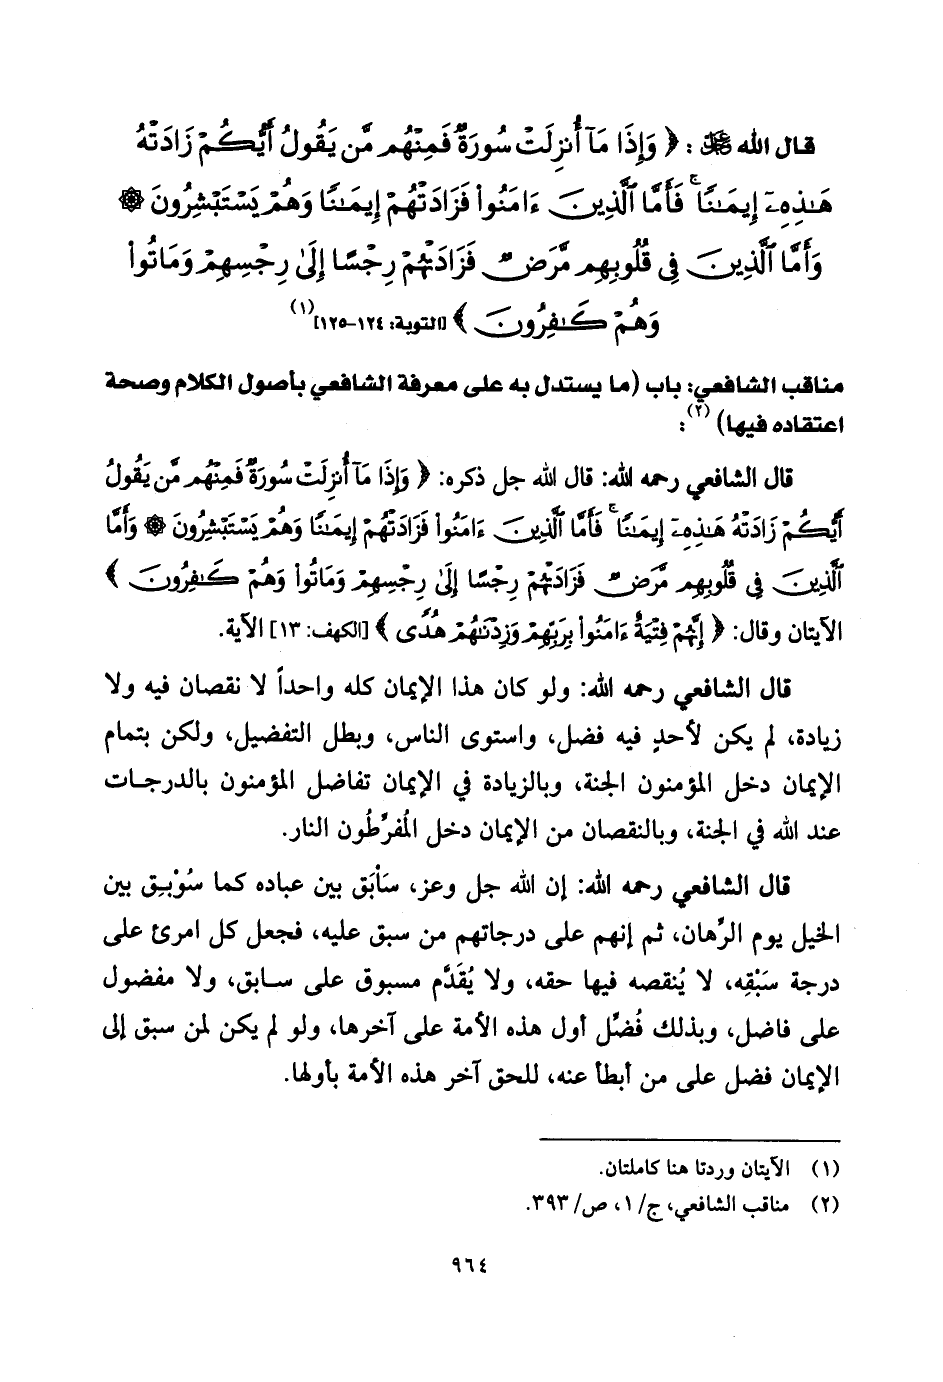 قال الله ﷻ : ﴿ وَإِذَا مَآ أُنزِلَتْ سُورَةٌ فَمِنْهُم مَّن يَقُولُ أَيُّكُمْ زَادَتْهُ
هَـٰذِهِۦٓ إِيمَـٰنًا ۚ فَأَمَّا ٱلَّذِينَ ءَامَنُوا۟ فَزَادَتْهُمْ إِيمَـٰنًا وَهُمْ يَسْتَبْشِرُونَ ۞
وَأَمَّا ٱلَّذِينَ فِى قُلُوبِهِم مَّرَضٌ فَزَادَتْهُمْ رِجْسًا إِلَىٰ رِجْسِهِمْ وَمَاتُوا۟
وَهُمْ كَـٰفِرُونَ ﴾ [التوبة: ١٢٤-١٢٥] (١)
مناقب الشافعي: باب (ما يستدل به على معرفة الشافعي بأصول الكلام وصحة
اعتقاده فيها) (٢) :
قال الشافعي رحمه الله: قال الله جل ذكره: ﴿ وَإِذَا مَآ أُنزِلَتْ سُورَةٌ فَمِنْهُم مَّن يَقُولُ
أَيُّكُمْ زَادَتْهُ هَـٰذِهِۦٓ إِيمَـٰنًا ۚ فَأَمَّا ٱلَّذِينَ ءَامَنُوا۟ فَزَادَتْهُمْ إِيمَـٰنًا وَهُمْ يَسْتَبْشِرُونَ ۞ وَأَمَّا
ٱلَّذِينَ فِى قُلُوبِهِم مَّرَضٌ فَزَادَتْهُمْ رِجْسًا إِلَىٰ رِجْسِهِمْ وَمَاتُوا۟ وَهُمْ كَـٰفِرُونَ ﴾
الآيتان وقال: ﴿ إِنَّهُمْ فِتْيَةٌ ءَامَنُوا۟ بِرَبِّهِمْ وَزِدْنَـٰهُمْ هُدًى ﴾ [الكهف: ١٣] الآية.
قال الشافعي رحمه الله: ولو كان هذا الإيمان كله واحداً لا نقصان فيه ولا
زيادة، لم يكن لأحدٍ فيه فضل، واستوى الناس، وبطل التفضيل، ولكن بتمام
الإيمان دخل المؤمنون الجنة، وبالزيادة في الإيمان تفاضل المؤمنون بالدرجات
عند الله في الجنة، وبالنقصان من الإيمان دخل المُفرِّطُون النار.
قال الشافعي رحمه الله: إن الله جل وعز، سَابَق بين عباده كما سُوْبِق بين
الخيل يوم الرِّهان، ثم إنهم على درجاتهم من سبق عليه، فجعل كل امرئ على
درجة سَبْقِه، لا يُنقصه فيها حقه، ولا يُقَدَّم مسبوق على سابق، ولا مفضول
على فاضل، وبذلك فُضِّل أول هذه الأمة على آخرها، ولو لم يكن لمن سبق إلى
الإيمان فضل على من أبطأ عنه، للحق آخر هذه الأمة بأولها.
(١) الآيتان وردتا هنا كاملتان.
(٢) مناقب الشافعي، ج/ ١، ص/ ٣٩٣.
٩٦٤